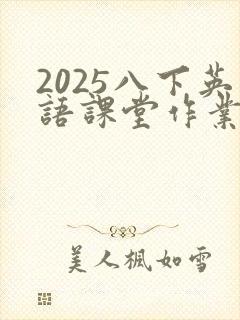 2025八下英
語課堂作業
美人楓如雪